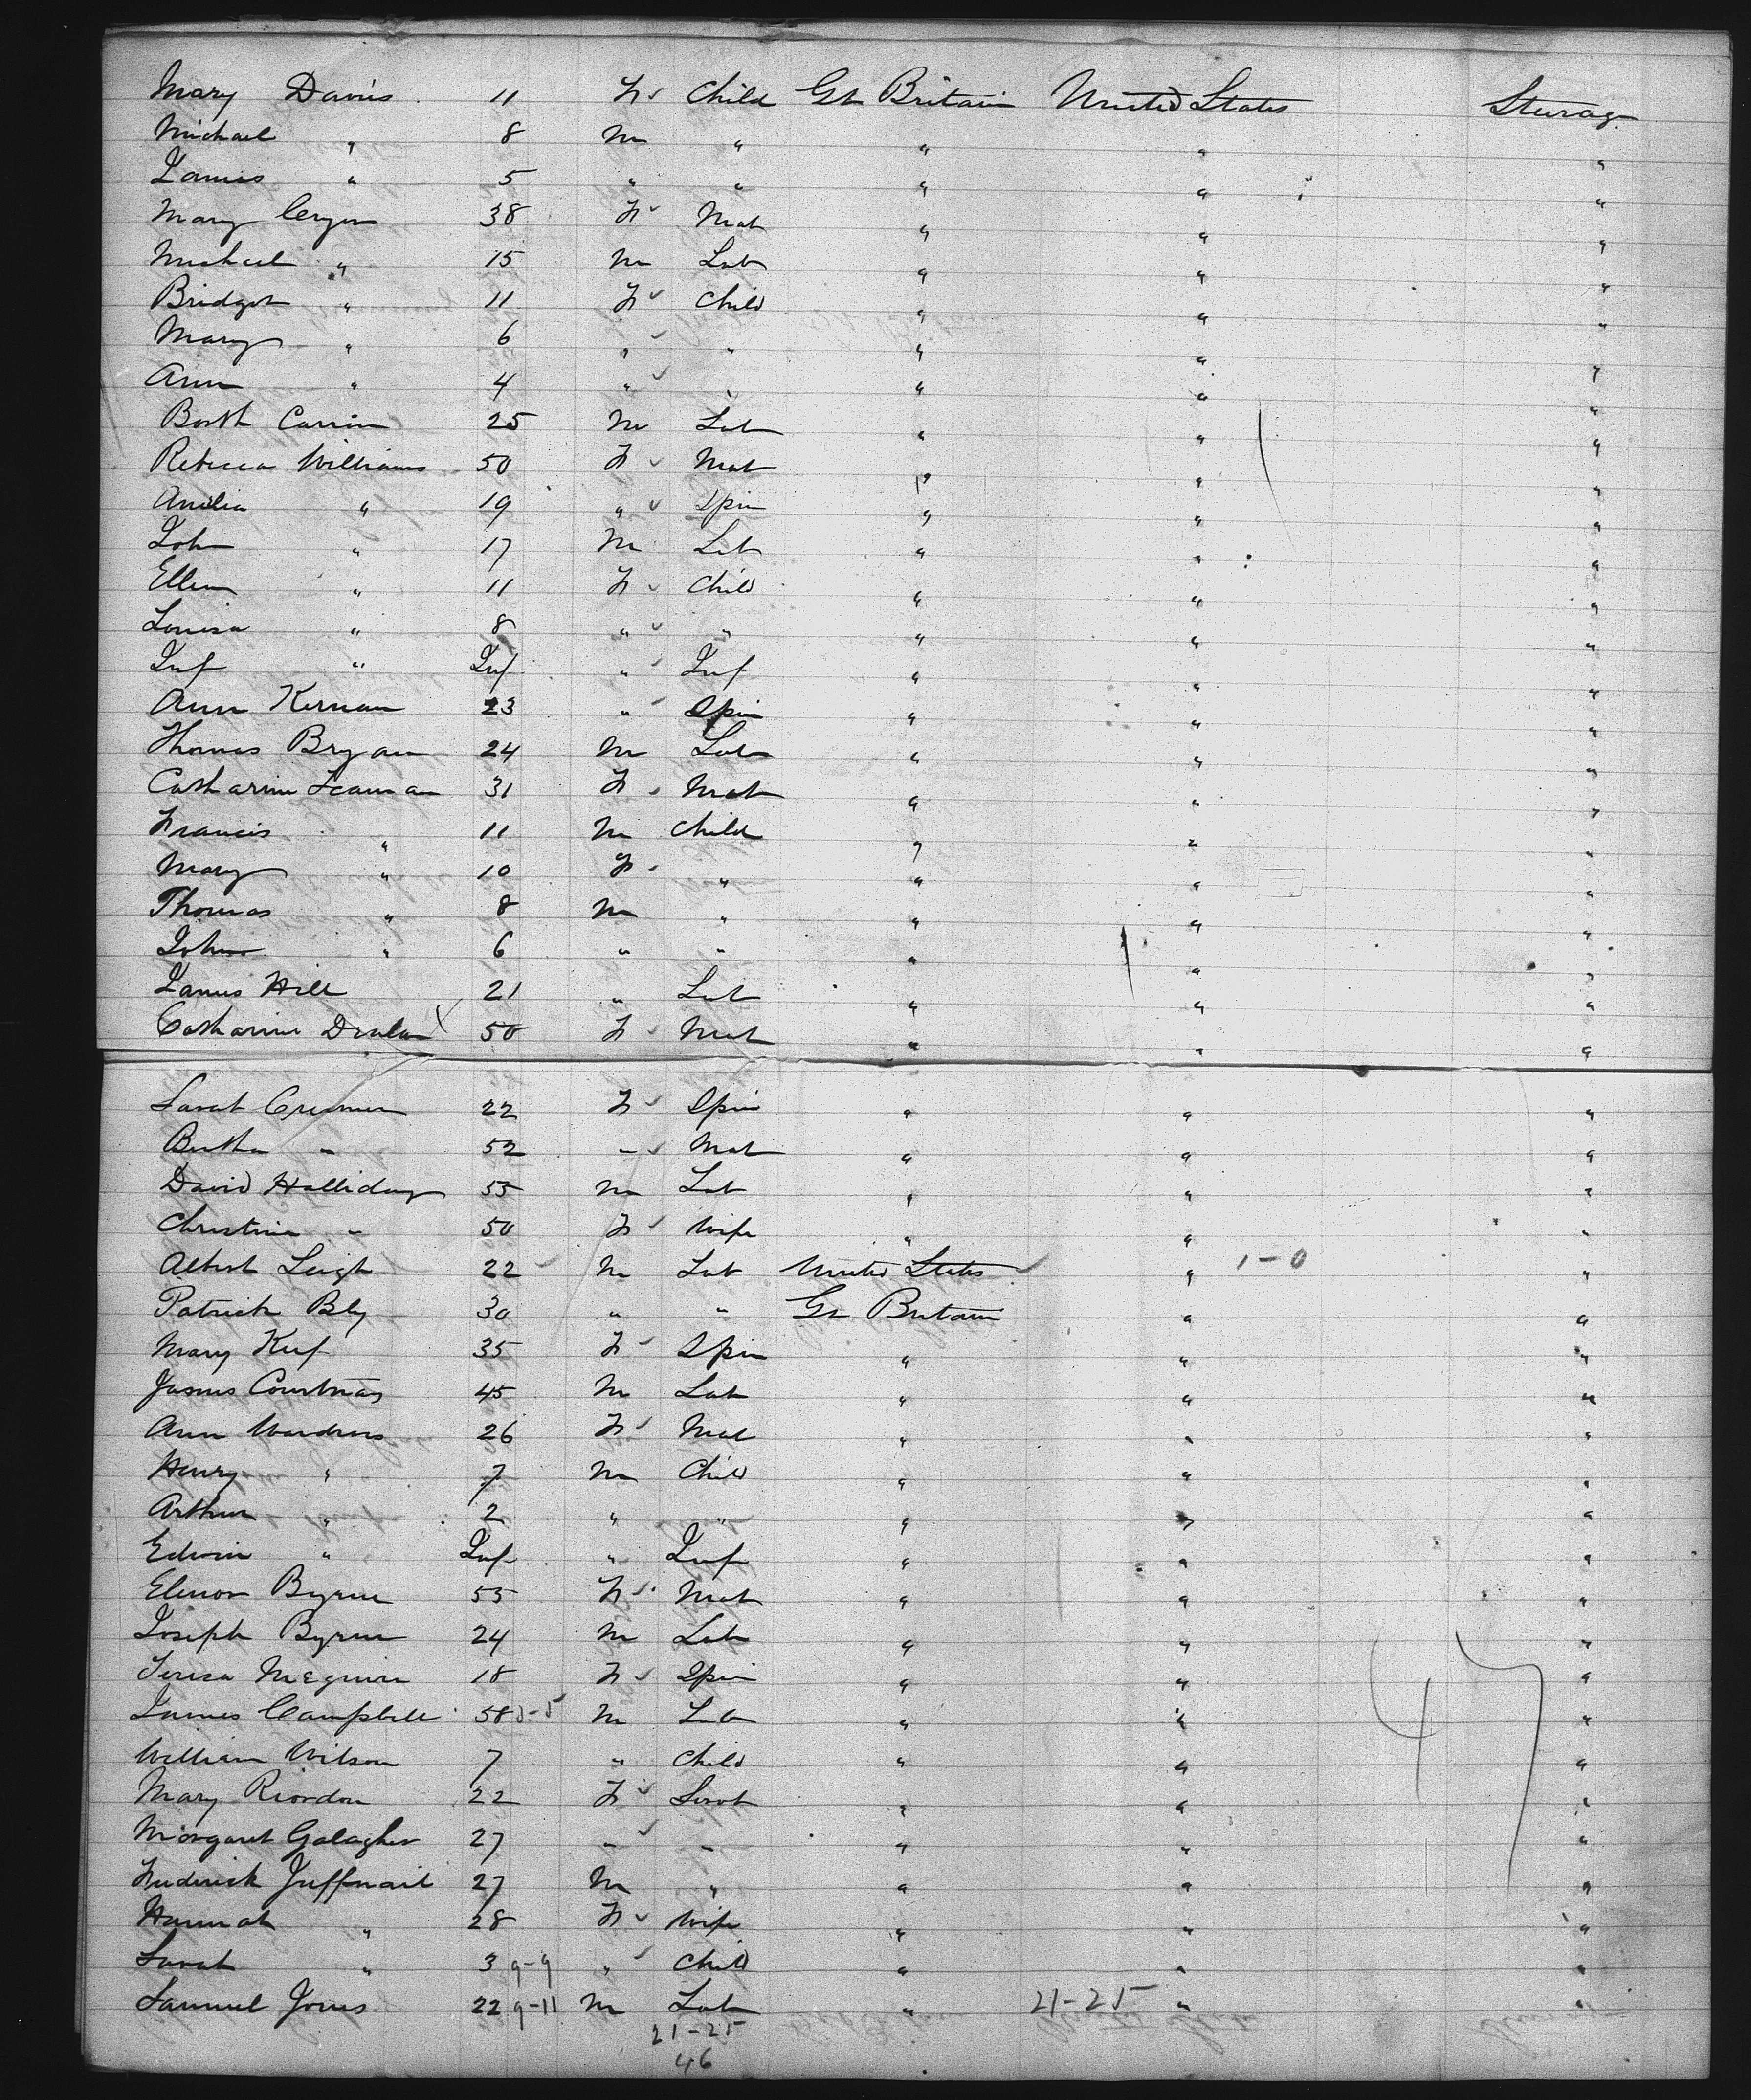 Mary Davis 11 F Child Gt Britain United States Steerag
Michael " 8 M " " " "
James " 5 " " " " "
Mary 38 F Mat " " "
Michael " 15 M Lab " " "
Bridget " 11 F Child " " "
Mary " 6 " " " " "
Ann " 4 " " " " "
25 M Lab " " "
Rebecca Williams 50 F Mat " " "
Amelia " 19 " Spin " " "
John " 17 M Lab " " "
Ellen " 11 F Child " " "
Louisa " 8 " " " " "
Inf " Inf " Inf " " "
Ann Kernan 23 " Spin " " "
Thomas Bryan 24 M Lab " " "
Catharine Leaman 31 F Mat " " "
Francis " 11 M Child " " "
Mary " 10 F " " " "
Thomas " 8 M " " " "
John " 6 " " " " "
James Hill 21 " Lab " " "
Catharine 50 F Mat " " "
Sarah Creamer 22 F Spin " " "
Bertha " 52 " Mat " " "
David Halliday 55 M Lab " " "
Christina " 50 F Wife " " "
Albert Leigh 22 M Lab United States " 1-0 "
Patrick Bly 30 " " Gt Britain " "
Mary Keef 35 F Spin " " "
James Courtnay 45 M Lab " " "
Ann 26 F Mat " " "
Henry " 7 M Child " " "
Arthur " 2 " " " " "
Edwin " Inf " Inf " " "
Elenor Byrne 55 F Mat " " "
Joseph Byrne 24 M Lab " " "
Teresa McGuire 18 F Spin " " "
James Campbell 58 M Lab " " "
William Wilson 7 " Child " " "
Mary Riordon 22 F Servt " " "
Margaret Galagher 27 " " " " "
Frederick Juffnail 27 M " " " "
Hannah " 28 F Wife " " "
Sarah " 3 9-9 " Child " " "
Samuel Jones 22 9-11 M Lab " 21-25 " "
21-25
46